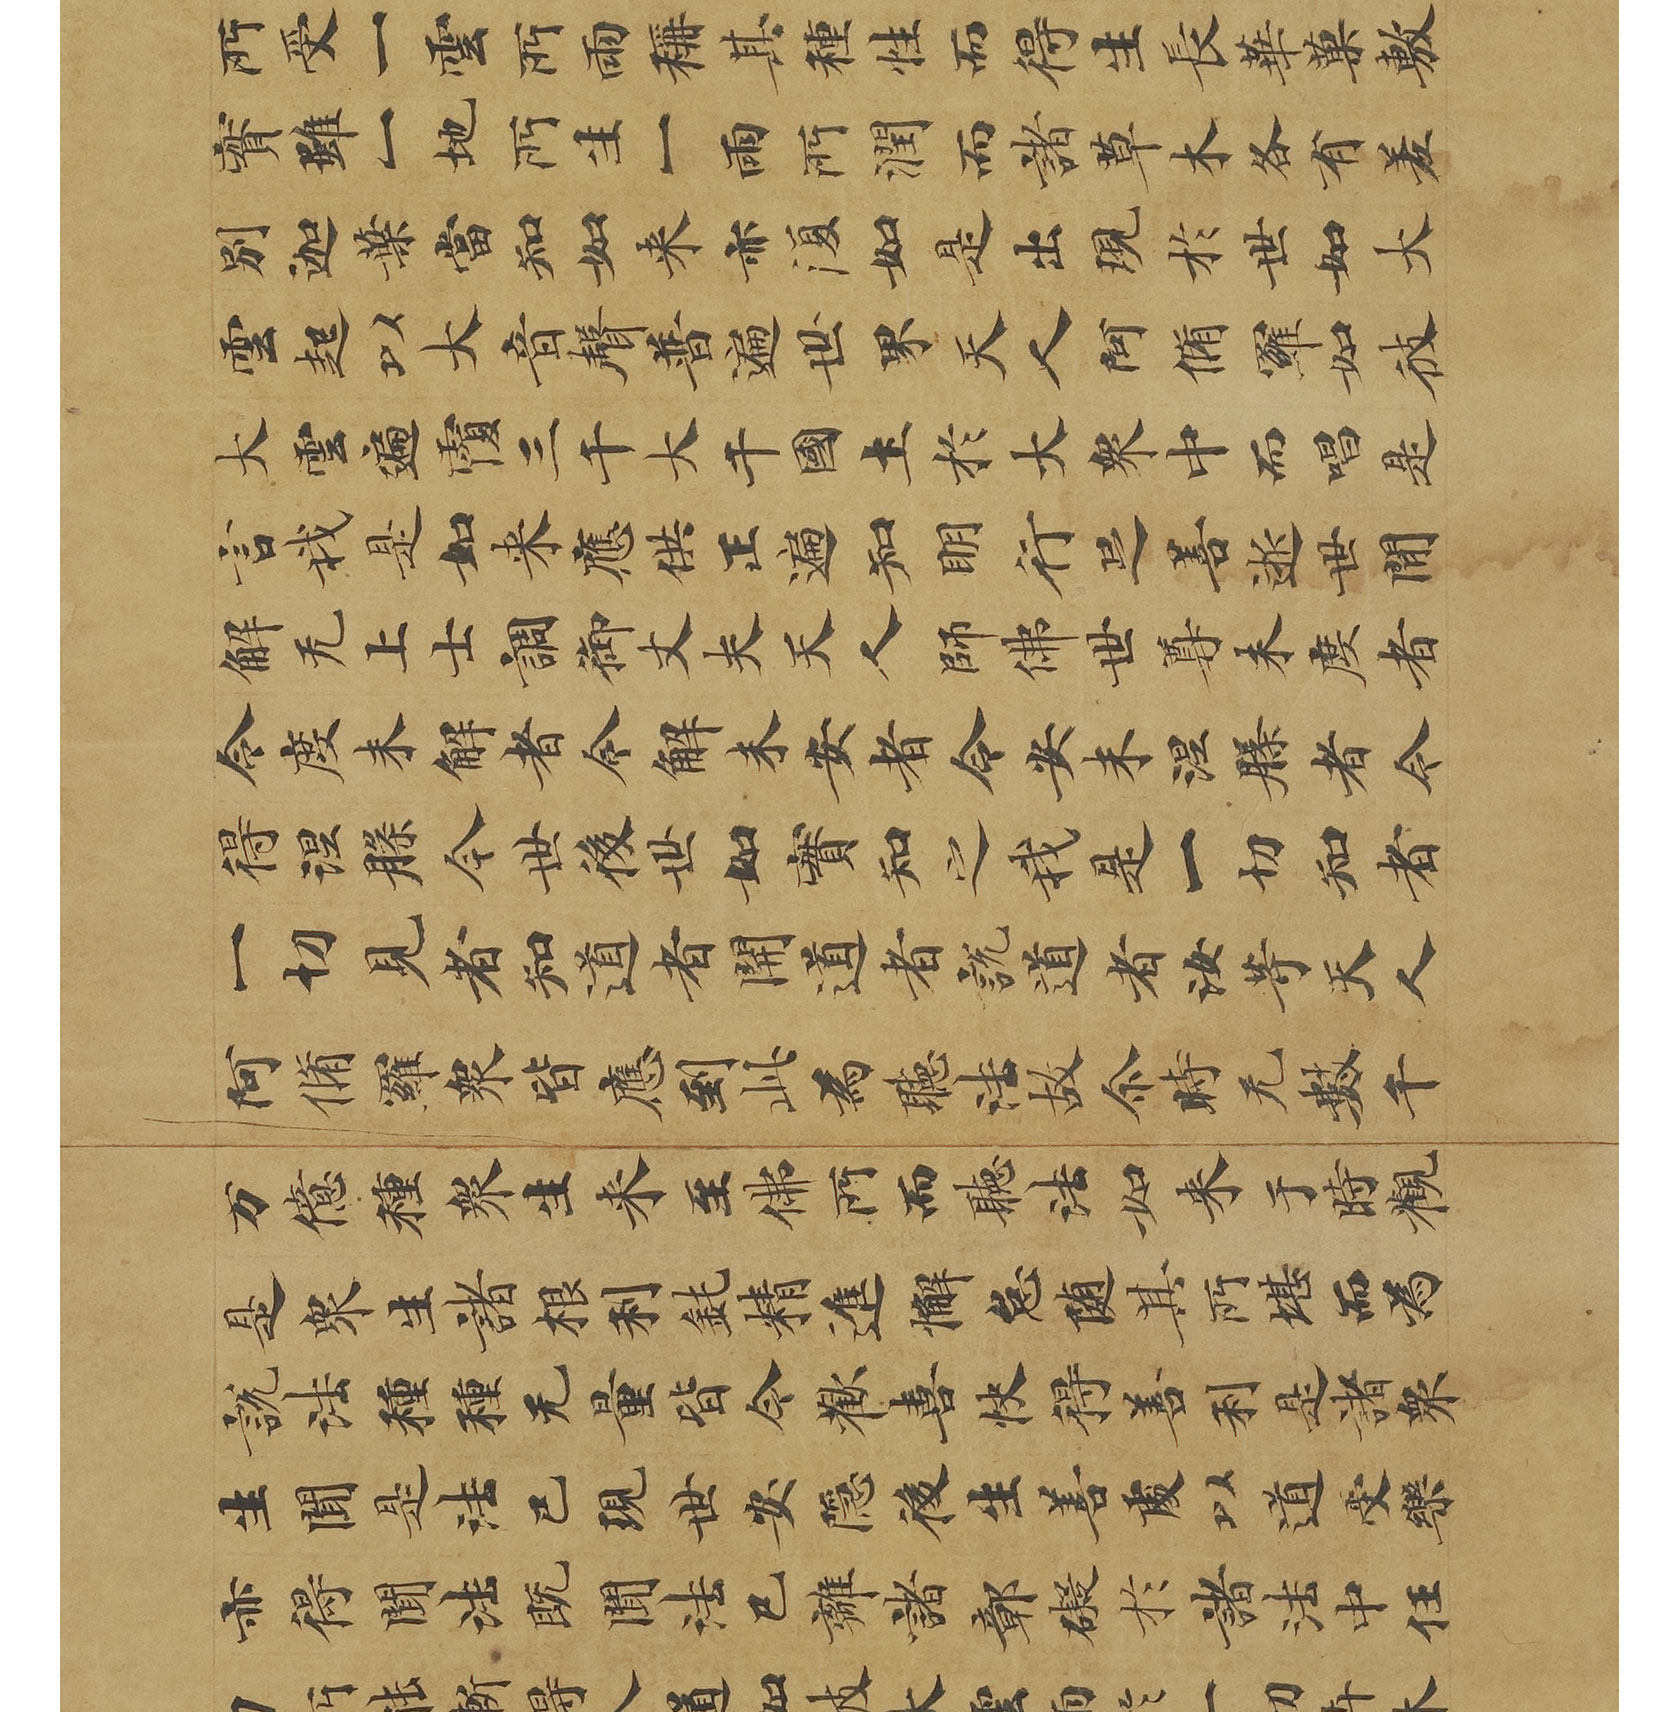 所受一雲所雨稱其種性而得生長華菓敷
實雖一地所生一雨所潤而諸草木各有差
別迦葉當知如来亦復如是出現於世如大
雲起以大音聲普遍世界天人阿脩羅如彼
大雲遍覆三千大千國土於大衆中而唱是
言我是如来應供正遍知明行足善逝世間
解无上士調御丈夫天人師佛世尊未度者
令度未解者令解未安者令安未涅槃者令
得涅槃今世後世如實知之我是一切知者
一切見者知道者開道者說道者汝等天人
阿脩羅衆皆應到此為聽法故尒時无數千
万億種衆生来至佛所而聽法如来于時觀
是衆生諸根利鈍精進懈怠随其所堪而為
說法種種无量皆令歡喜快得善利是諸衆
生聞是法已現世安隱後生善處以道受樂
亦得聞法既聞法已離諸鄣礙於諸法中任